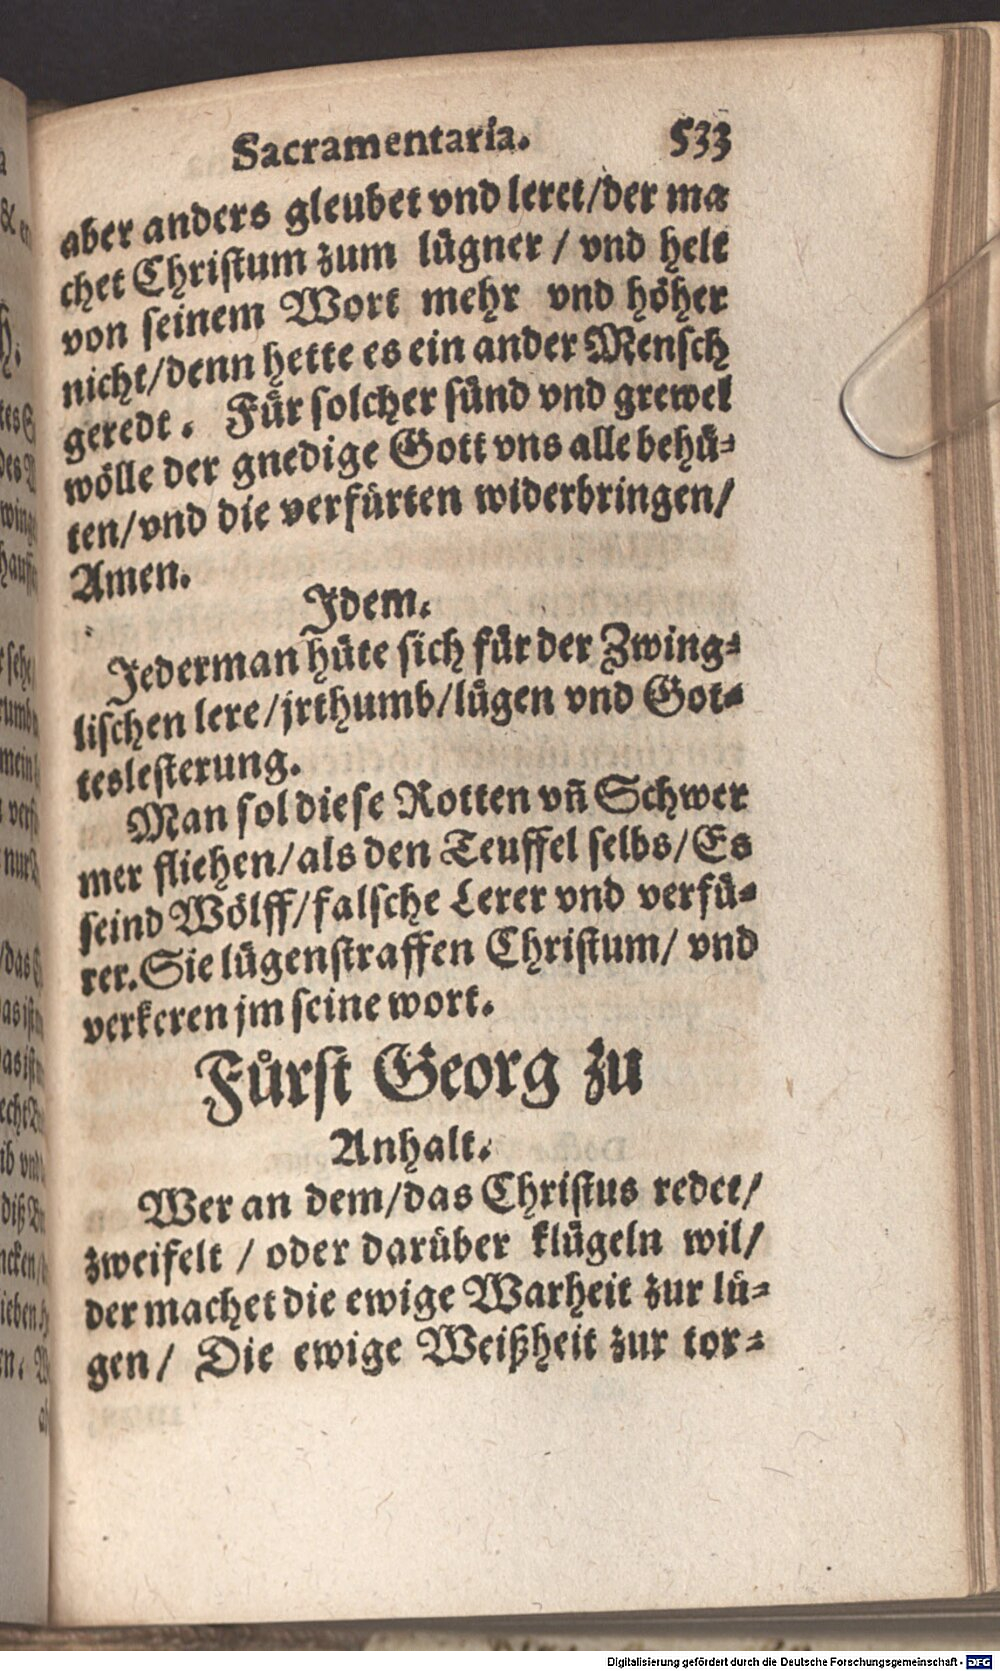 Sacramentaria. 533
aber anders gleubet vnd leret/der ma
chet Christum zum lügner / vnd helt
von seinem Wort mehr vnd höher
nicht/denn hette es ein ander Mensch
geredt. Für solcher sünd vnd grewel
wölle der gnedige Gott vns alle behü=
ten/vnd die verfürten widerbringen/
Amen.
Idem.
Jederman hüte sich für der Zwing=
lischen lere/jrthumb/lügen vnd Got=
teslesterung.
Man sol diese Rotten vñ Schwer
mer fliehen/als den Teuffel selbs/Es
seind Wölff/falsche Lerer vnd verfü=
rer. Sie lügenstraffen Christum/ vnd
verkeren jm seine wort.
Fürst Georg zu
Anhalt.
Wer an dem/das Christus redet/
zweifelt / oder darüber klügeln wil/
der machet die ewige Warheit zur lü=
gen/ Die ewige Weißheit zur tor=
Digitalisierung gefördert durch die Deutsche Forschungsgemeinschaft - DFG